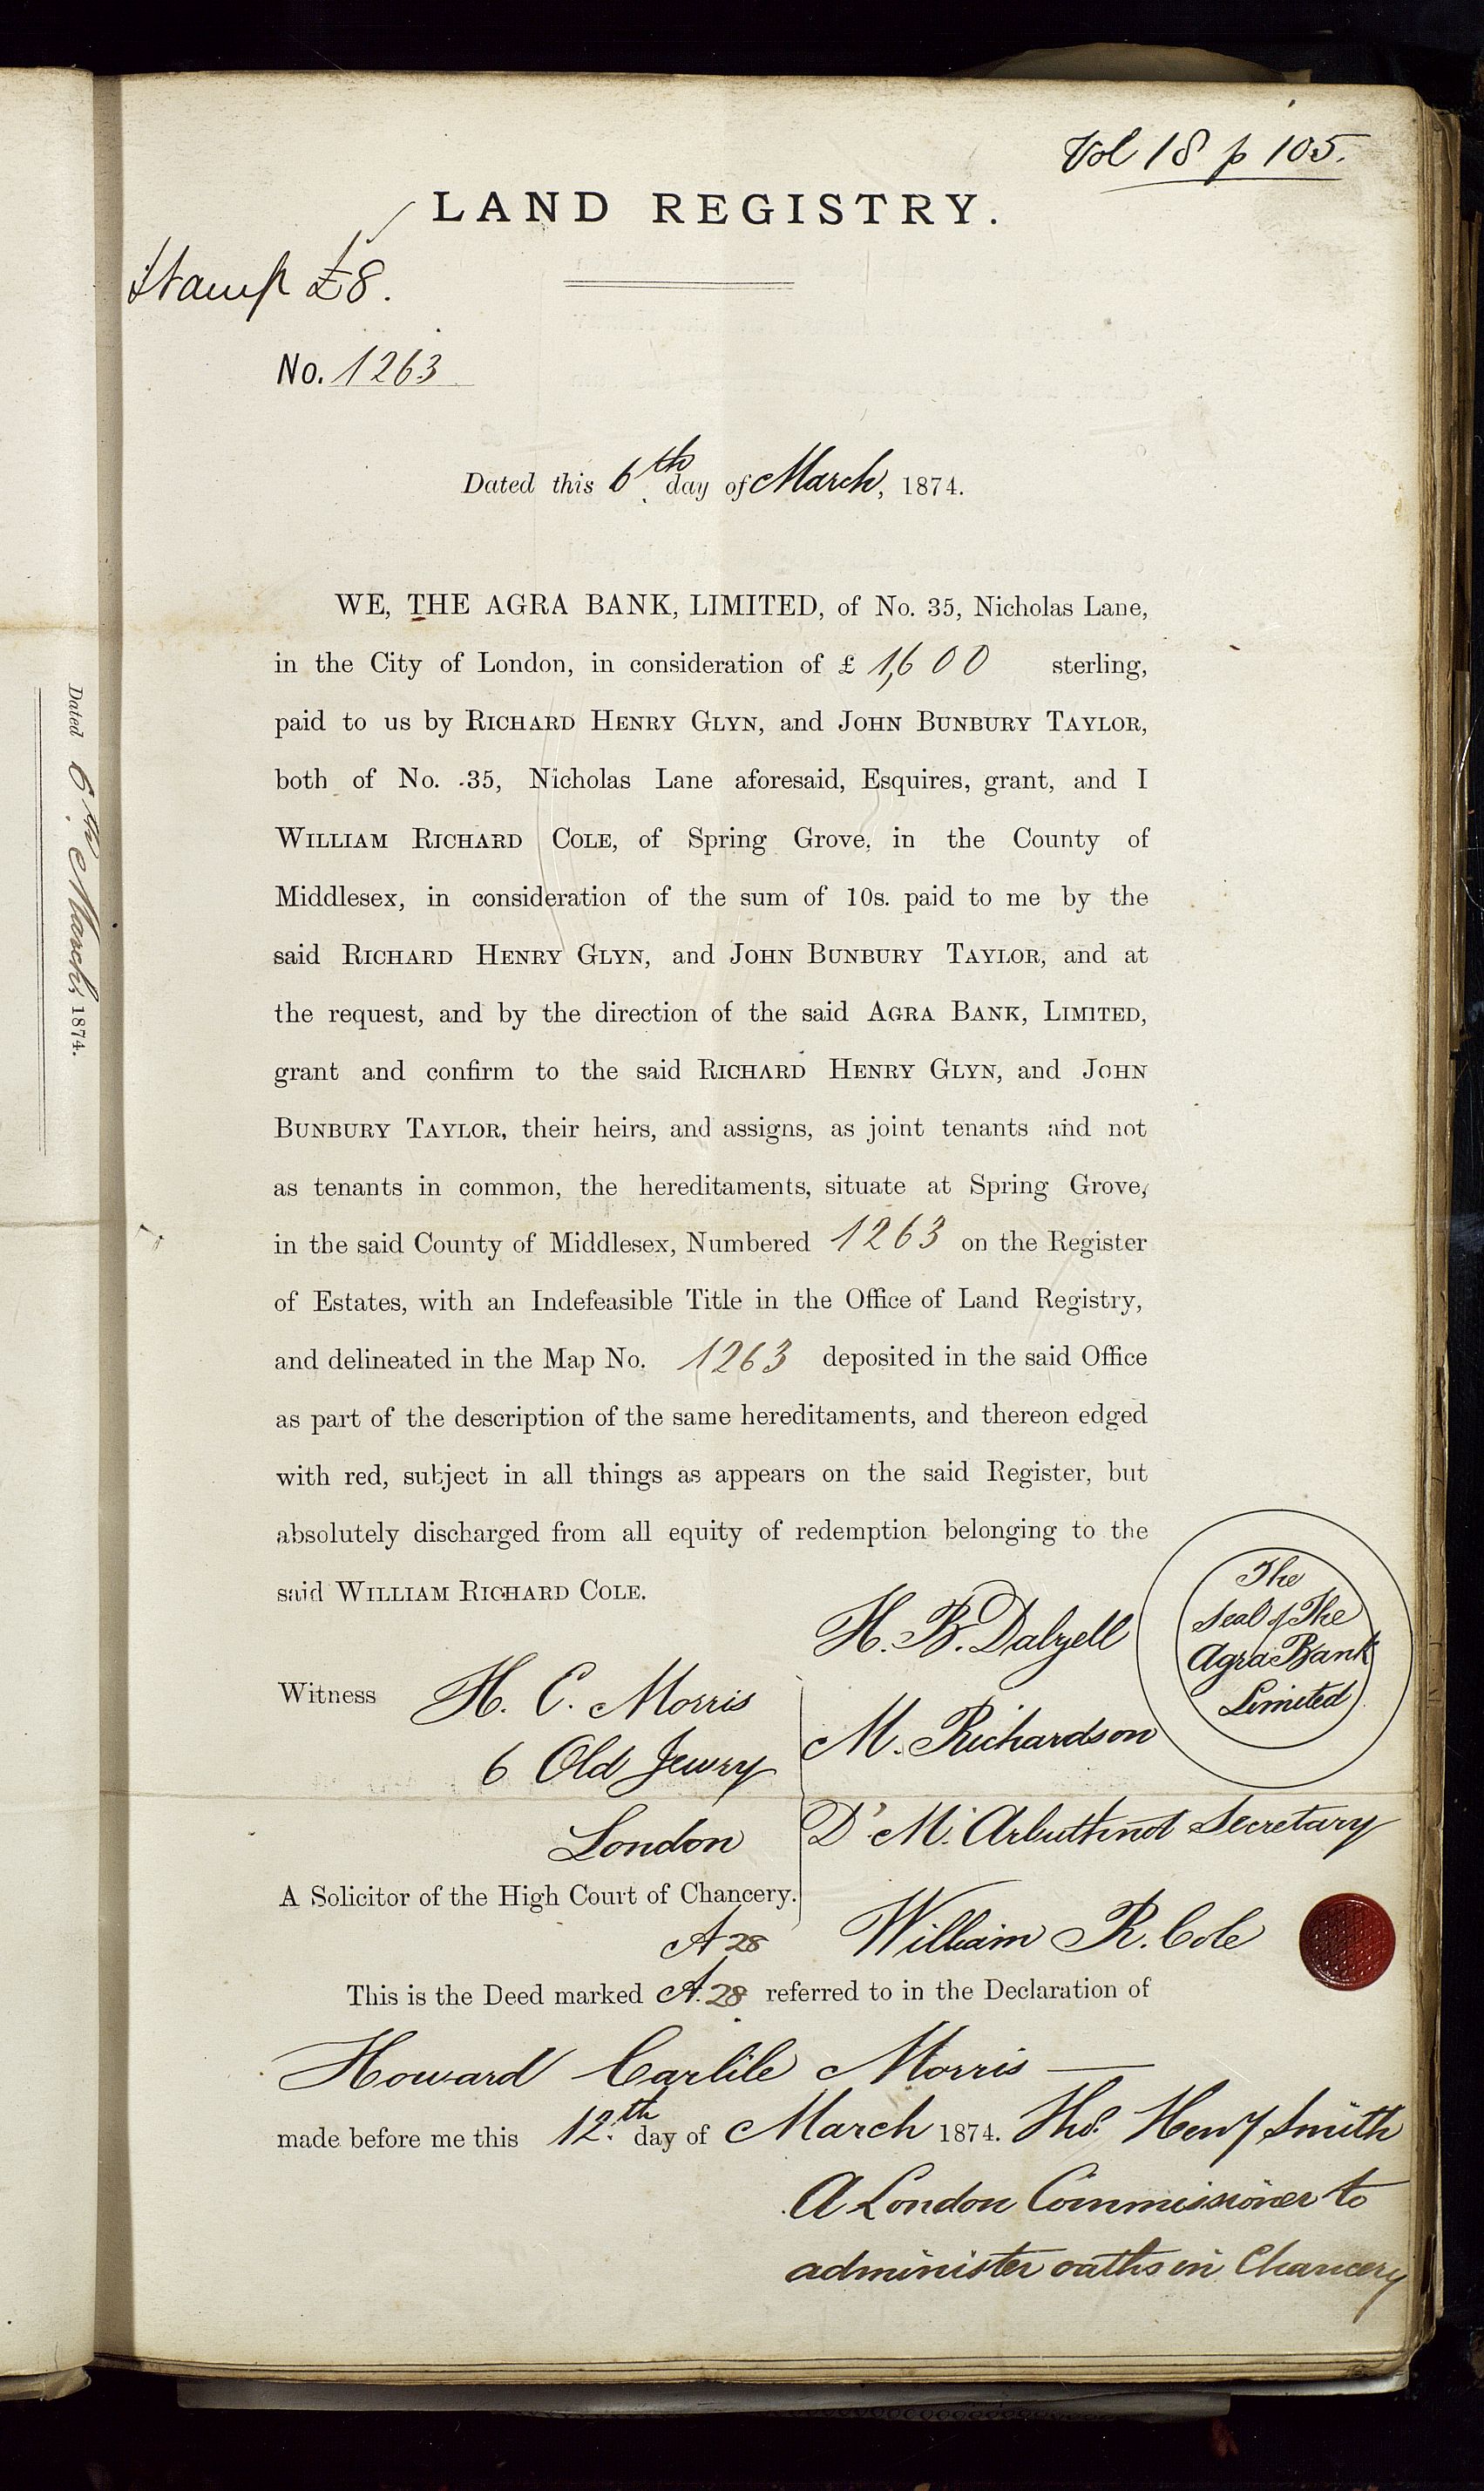 Vol 18 p 105.
LAND REGISTRY.
Stamp £8.
No. 1263
Dated this 6th day of March, 1874.
WE, THE AGRA BANK, LIMITED, of No. 35, Nicholas Lane,
in the City of London, in consideration of £ 1,600 sterling,
paid to us by RICHARD HENRY GLYN, and JOHN BUNBURY TAYLOR,
both of No. 35, Nicholas Lane aforesaid, Esquires, grant, and I
WILLIAM RICHARD COLE, of Spring Grove, in the County of
Middlesex, in consideration of the sum of 10s. paid to me by the
said RICHARD HENRY GLYN, and JOHN BUNBURY TAYLOR, and at
the request, and by the direction of the said AGRA BANK, LIMITED,
grant and confirm to the said RICHARD HENRY GLYN, and JOHN
BUNBURY TAYLOR, their heirs, and assigns, as joint tenants and not
as tenants in common, the hereditaments, situate at Spring Grove,
in the said County of Middlesex, Numbered 1263 on the Register
of Estates, with an Indefeasible Title in the Office of Land Registry,
and delineated in the Map No. 1263 deposited in the said Office
as part of the description of the same hereditaments, and thereon edged
with red, subject in all things as appears on the said Register, but
absolutely discharged from all equity of redemption belonging to the
said WILLIAM RICHARD COLE.
The
Seal of The
Agra Bank
Limited
H. B. Dalzell
Witness H. C. Morris
M. Richardson
6 Old Jewry
D. M. Arbuthnot Secretary
London
A Solicitor of the High Court of Chancery.
A 28
William R. Cole
This is the Deed marked A. 28 referred to in the Declaration of
Howard Carlile Morris
made before me this 12th day of March 1874. Thos. Heny Smith
A London Commissioner to
administer oaths in Chancery
Dated 6th March, 1874.